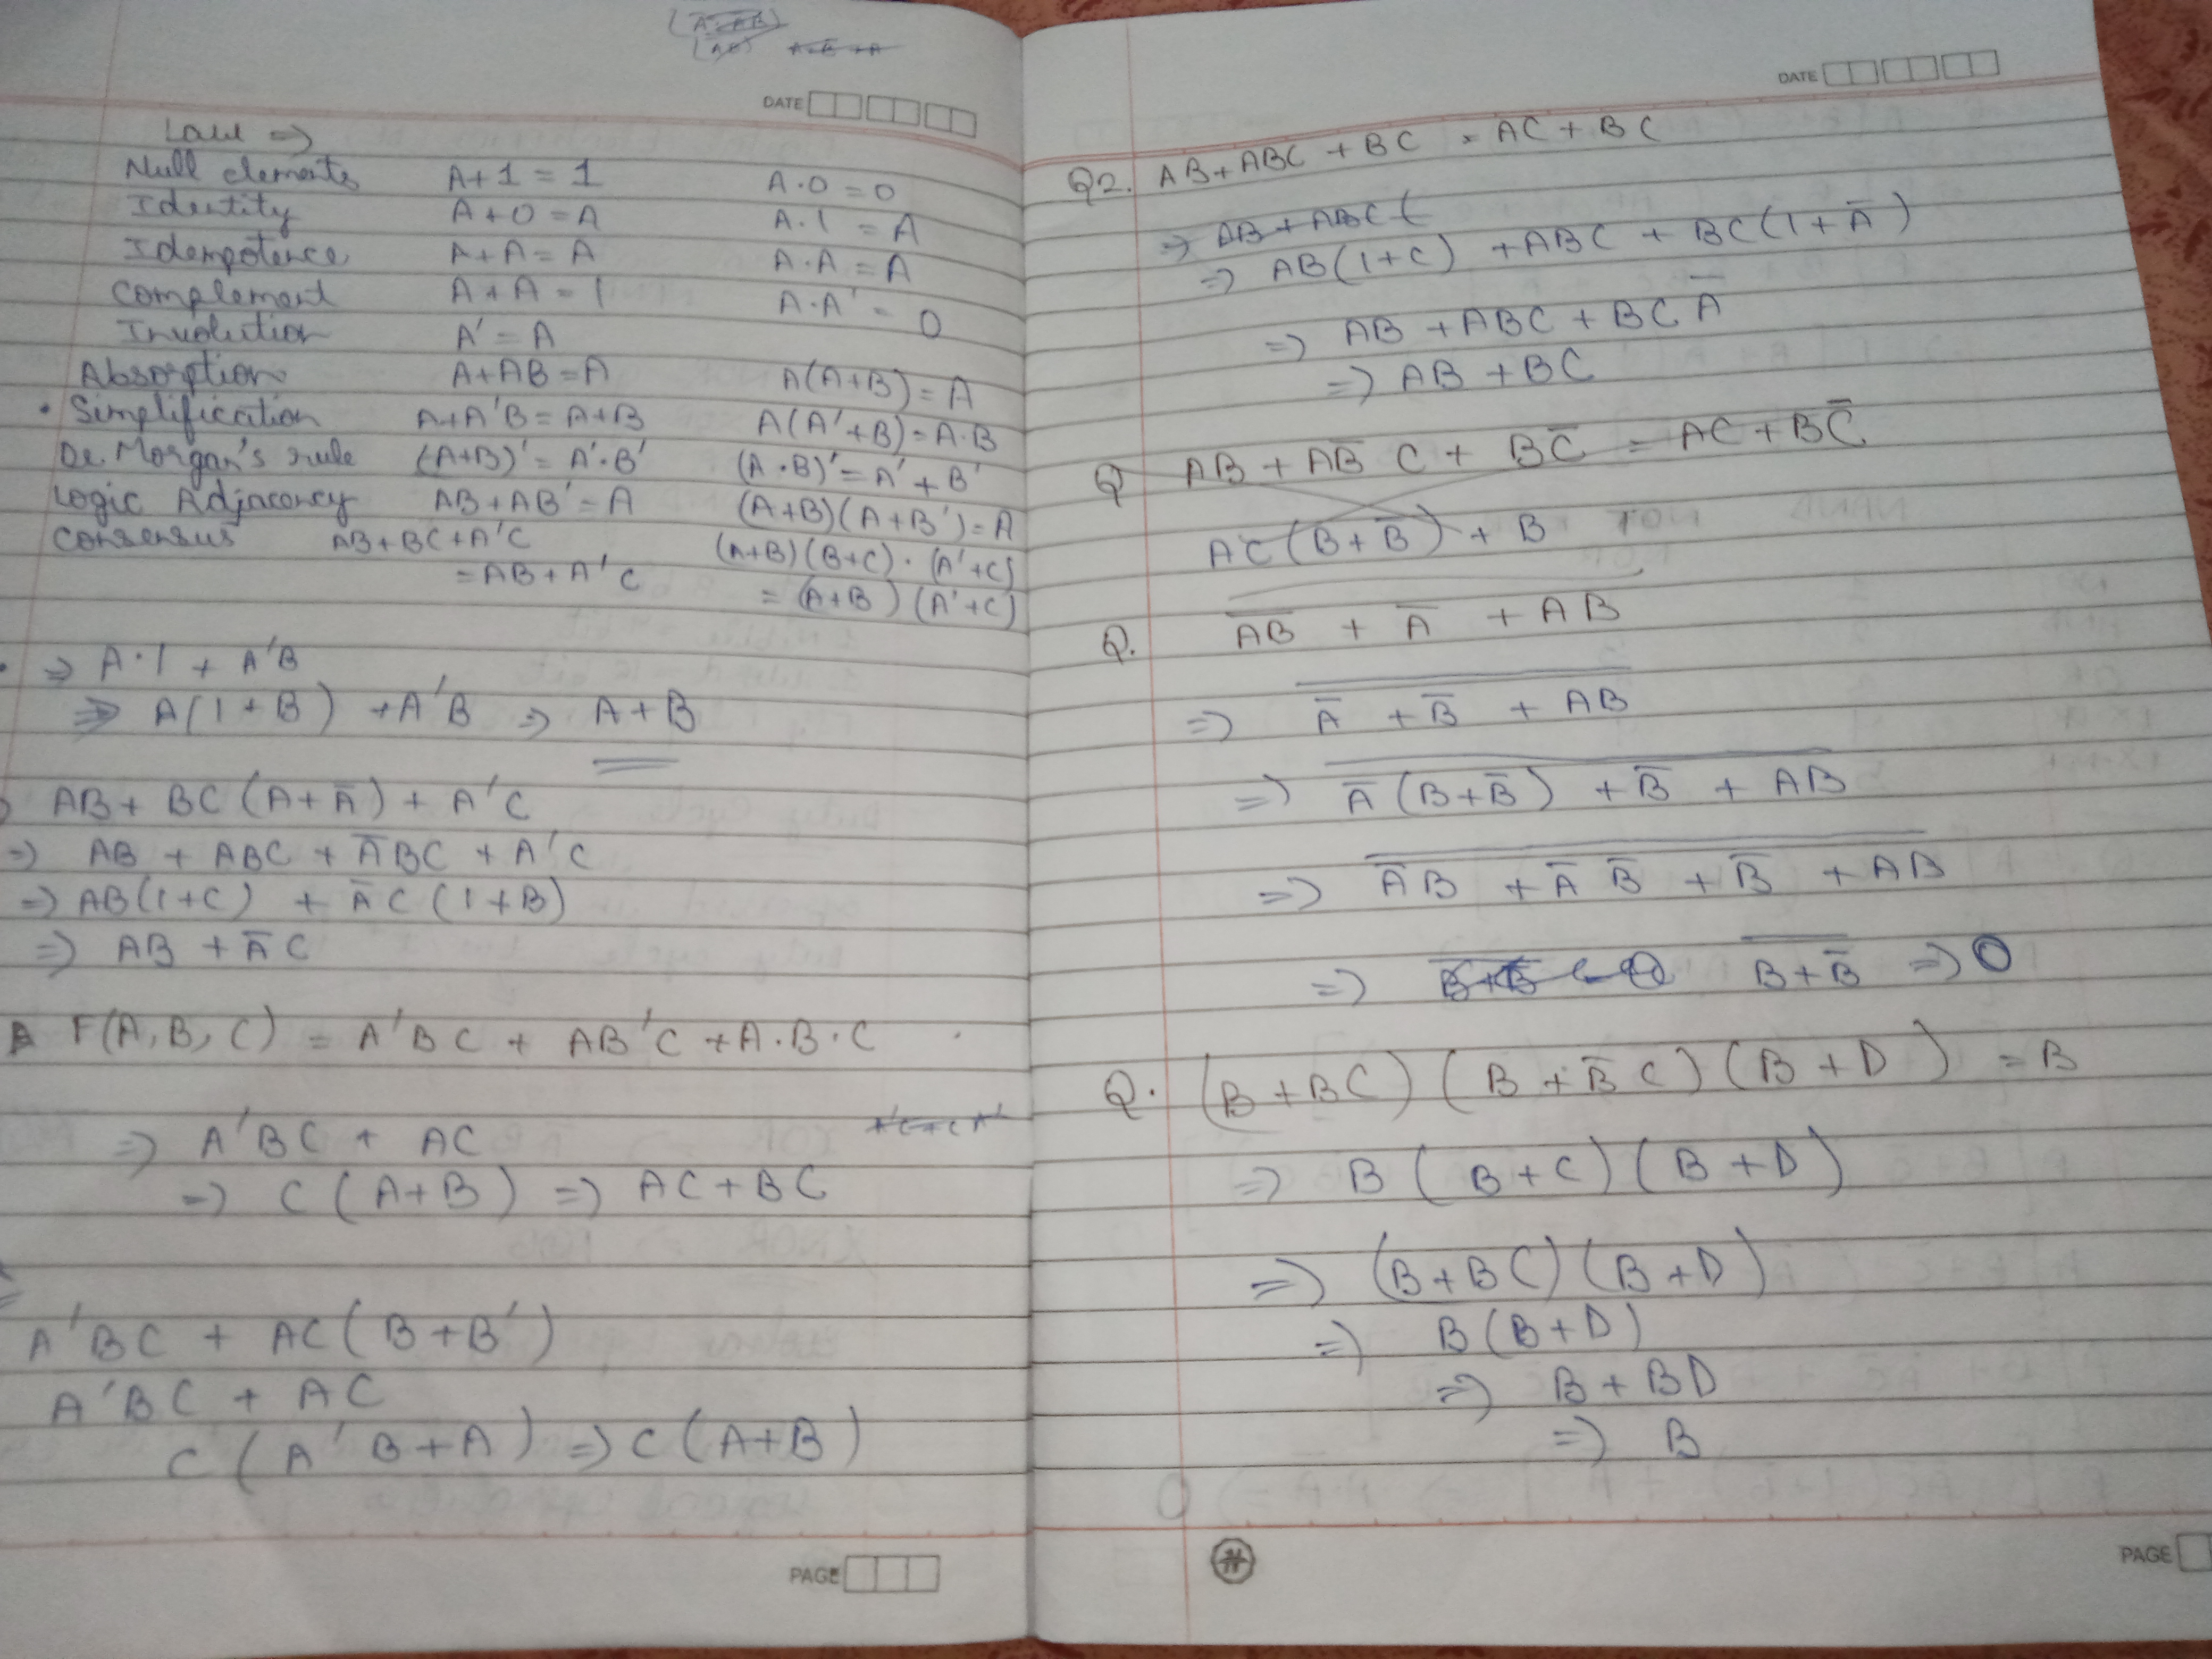 DATE
Law =>
Null elements A+1 = 1 A·0 = 0
Identity A+0 = A A·1 = A
Idempotence A+A = A A·A = A
Complement A+A = 1 A·A' = 0
Involution A' = A
Absorption A+AB = A A(A+B) = A
• Simplification A+A'B = A+B A(A'+B) = A·B
De Morgan's rule (A+B)' = A'·B' (A·B)' = A' + B'
Logic Adjacency AB+AB' = A (A+B)(A+B') = A
Consensus AB+BC+A'C (A+B)(B+C)·(A'+C)
= AB+A'C = (A+B)(A'+C)
• => A·1 + A'B
=> A(1+B) + A'B => A+B
AB + BC(A+A̅) + A'C
=> AB + ABC + A̅BC + A'C
=> AB(1+C) + A̅C(1+B)
=> AB + A̅C
F(A,B,C) = A'BC + AB'C + A·B·C
=> A'BC + AC
=> C(A+B) => AC+BC
A'BC + AC(B+B')
A'BC + AC
C(A'B+A) => C(A+B)
PAGE
DATE
Q2. AB+ABC + BC = AC + BC
=> AB + ABC(
=> AB(1+C) + ABC + BC(1+A̅)
=> AB + ABC + BCA̅
=> AB + BC
Q AB + AB̅ C + BC̅ = AC + BC̅
AC(B+B̅) + B
Q. A̅B̅ + A̅ + AB
=> A̅ + B̅ + AB
=> A̅(B+B̅) + B̅ + AB
=> A̅B + A̅ B̅ + B̅ + AB
=> B+B̅ => 0
Q. (B+BC)(B+B̅C)(B+D) = B
=> B(B+C)(B+D)
=> (B+BC)(B+D)
=> B(B+D)
=> B+BD
=> B
PAGE